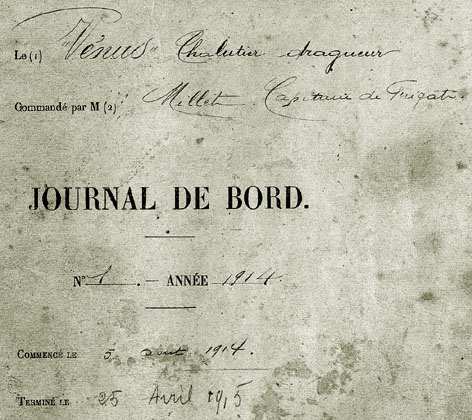 Le (1) "Vénus" Chalutier dragueur
Commandé par M (2) Millet Capitaine de Frégate.
JOURNAL DE BORD.
N° 1. — ANNÉE 1914.
COMMENCÉ LE 5 aout 1914.
TERMINÉ LE 25 Avril 1915